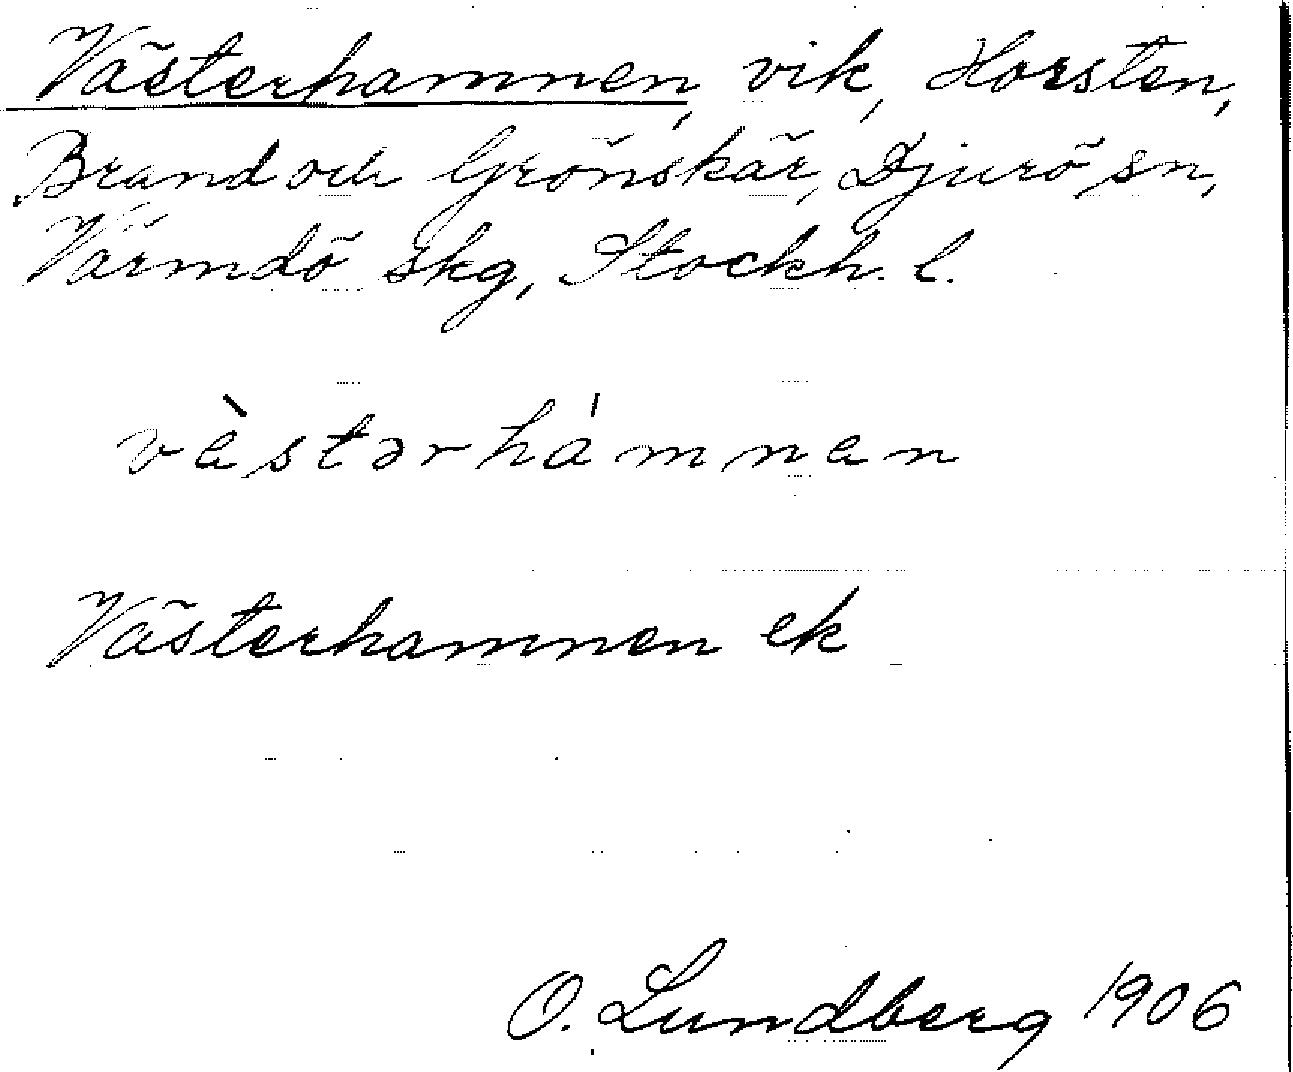 Västerhamnen, vik, Horsten,
Brand och Grönskär, Djurö sn,
Värmdö skg, Stockh. l.
vàstərhámnan
Västerhamnen ek
O. Lundberg 1906